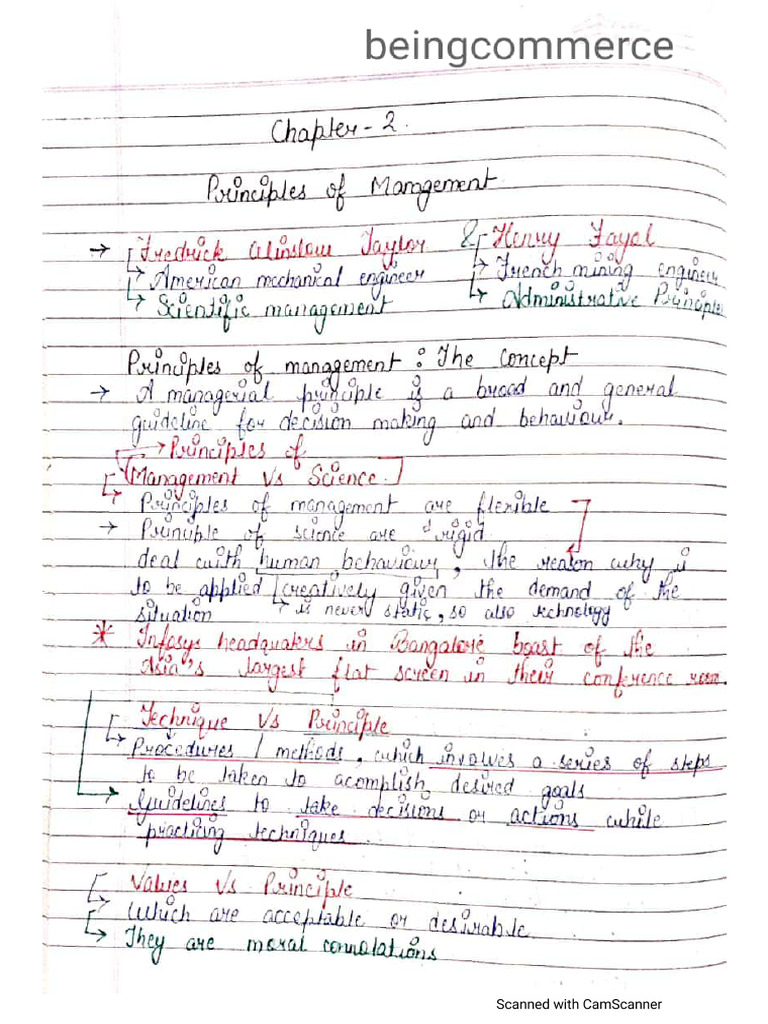 beingcommerce
Chapter-2.
Principles of Management
→ Fredrick Winslow Taylor & Henry Fayol
↳ American mechanical engineer ↳ French mining engineer
↳ Scientific management ↳ Administrative Principles
Principles of management : The concept
→ A managerial principle is a broad and general
guideline for decision making and behaviour.
→ Principles of
Management Vs Science
Principles of management are flexible
→ Principle of science are rigid
deal with human behaviour, the reason why is
to be applied creatively given the demand of the
situation ↳ is never static, so also technology
* Infosys headquaters in Bangalore boast of the
Asia's largest flat screen in their conference room.
Technique Vs Principle
Procedures / methods, which involves a series of steps
to be taken to acomplish desired goals
Guidelines to take decisions or actions while
practicing techniques.
Values Vs Principle
Which are acceptable or desirable
↳ They are moral connotations
Scanned with CamScanner